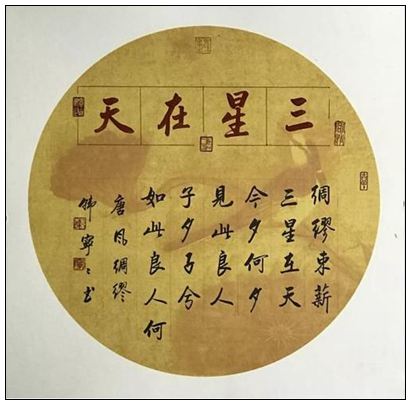 三星在天
綢繆束薪
三星在天
今夕何夕
見此良人
子兮子兮
如此良人何
唐风綢繆
寧〻书